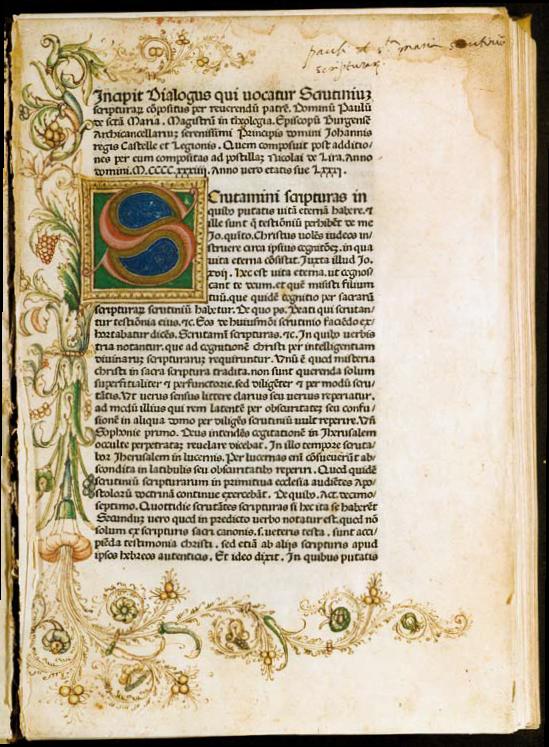 pauli de sta maria scrutiniū
scripturaꝝ
Incipit Dialogus qui uocatur Scrutiniuꝫ
scripturaꝝ cōpositus per reuerendū patrē. Dominū Paulū
de sctā Maria. Magistrū in theologia. Episcopū Burgensē
Archicancellariuꝫ serenissimi Principis domini Johannis
regis Castelle et Legionis. Quem composuit post additio/
nes per eum compositas ad postillaꝫ Nicolai de Lira. Anno
domini. M.CCCC.xxxiiii. Anno uero etatis sue Lxxxi.
SCrutamini scripturas in
quibꝰ putatis uitā eternā habere. ⁊
ille sunt q̄ testiōniū perhibēt de me
Jo. quito. Christus uolēs iudeos in/
struere circa ipsius cognitōeꝫ. in qua
uita eterna cōsistit. Juxta illud Jo.
xvij. Hec est uita eterna. ut cognos/
cant te deum. et quē misisti filium
tuū. que quidē cognitio per sacrarū
scripturaꝝ scrutiniū habetur. De quo ps. Beati qui scrutan/
tur testiōnia eius. ⁊c. Eos de huiusmōi scrutinio faciēdo ex/
hortabatur dicēs. Scrutamī scripturas. ⁊c. In quibꝰ uerbis
tria notantur. que ad cognitionē christi per intelligentiam
diuinaruꝫ scripturaruꝫ requiruntur. Vnū ē quod misteria
christi in sacra scriptura tradita. non sunt querenda solum
superfitialiter ⁊ perfunctorie. sed diligēter ⁊ per modū scru/
tātis. Vt uerus sensus littere clarus seu uerus reperiatur.
ad modū illius qui rem latentē per obscuritateꝫ seu confu/
sionē in aliqua domo per diligēs scrutiniū uult reperire. Vñ
Sophonie primo. Deus intendēs cogitationē in Jherusalem
occulte perpetrataꝫ reuelare dicebat. In illo tempore scruta/
bor Jherusalem in lucernis. Per lucernas enī cōsueuerūt ab
scondita in latibulis seu obscuritatibꝰ reperiri. Quod quidē
scrutiniū scripturarum in primitiua ecclesia audiētes Apo/
stolorū doctrinā continue exercebāt. De quibꝰ. Act. decimo
septimo. Quottidie scrutātes scripturas si hec ita se haberēt
Secunduꝫ uero quod in predicto uerbo notatur est. quod nō
solum ex scripturis sacri canonis. s. ueteris testa. sunt acci
piēda testimonia christi. sed etiā ab alijs scripturis apud
ipsos hebreos autenticis. Et ideo dixit. In quibus putatis